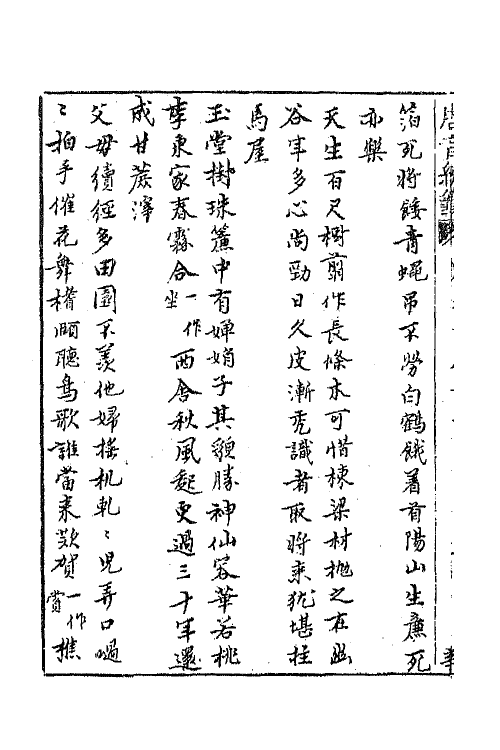 箔死將餧青蠅弔不勞白鶴餓著首陽山生廉死
亦樂
天生百尺樹剪作長條木可惜棟梁材拋之在幽
谷年多心尚勁日久皮漸禿識者取將來犹堪柱
馬屋
玉堂掛珠簾中有嬋娟子其貌勝神仙容華若桃
李東家春霧合一作坐西舍秋風起更過三十年還
成甘蔗滓
父母續經多田園不羨他婦搖机軋〻児弄口喎
〻拍手催花舞榰頤聽鳥歌誰當来歎賀一作賞樵